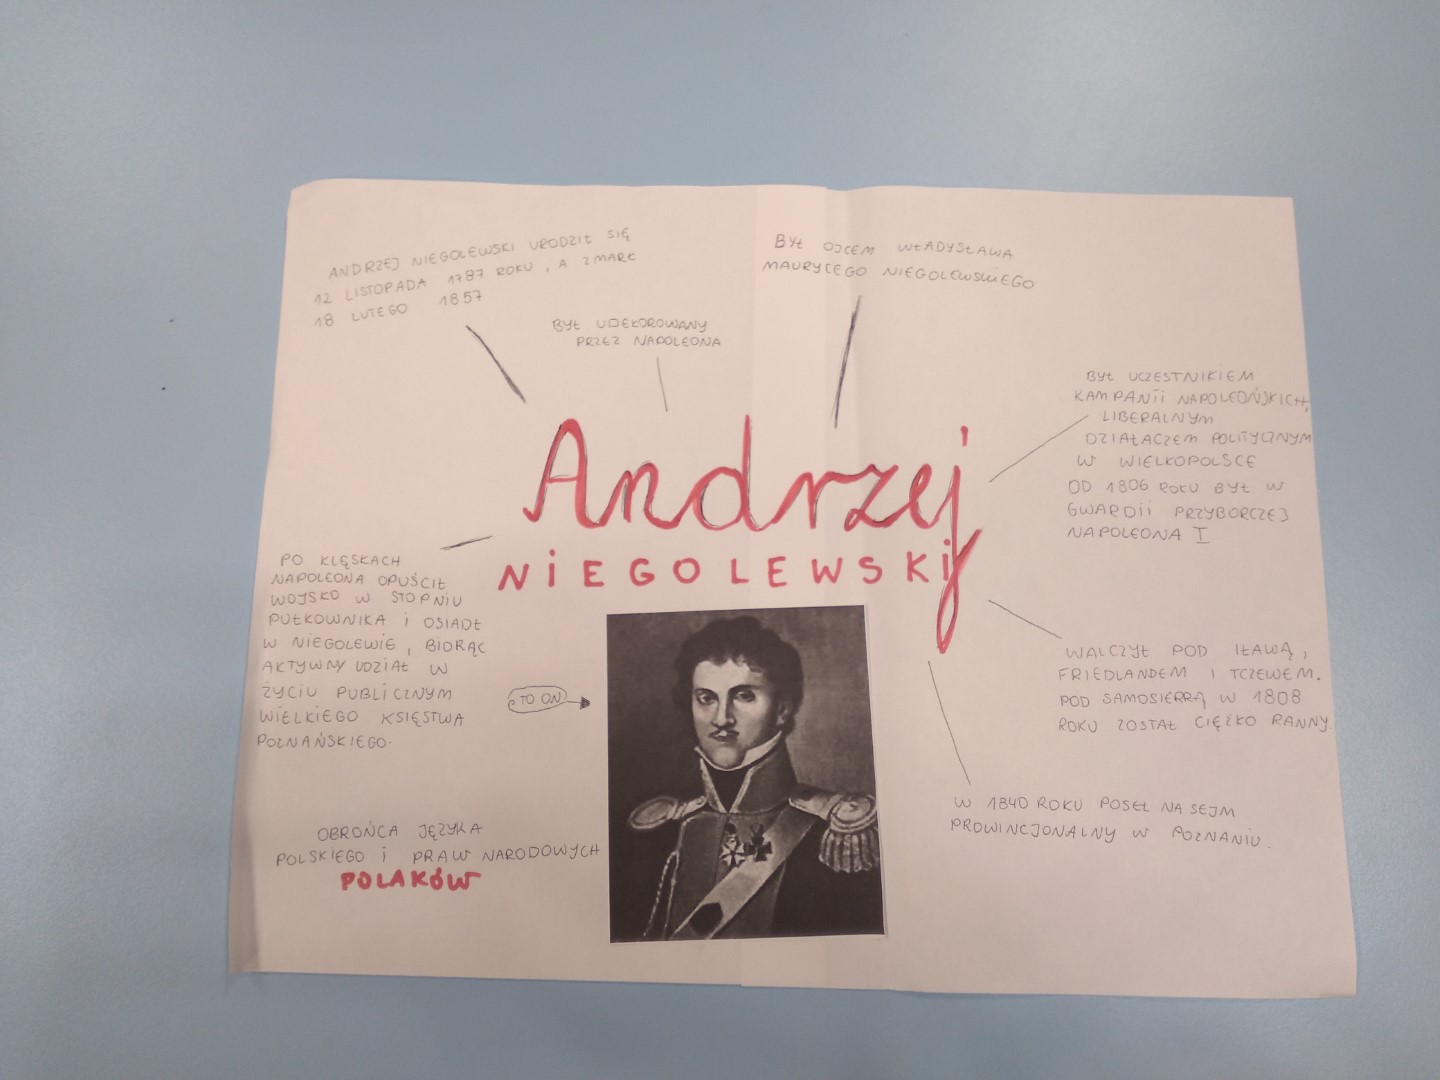 ANDRZEJ NIEGOLEWSKI URODZIŁ SIĘ
12 LISTOPADA 1787 ROKU, A ZMARŁ
18 LUTEGO 1857
BYŁ UDEKOROWANY
PRZEZ NAPOLEONA
BYŁ OJCEM WŁADYSŁAWA
MAURYCEGO NIEGOLEWSKIEGO
BYŁ UCZESTNIKIEM
KAMPANII NAPOLEOŃSKICH,
LIBERALNYM
DZIAŁACZEM POLITYCZNYM
W WIELKOPOLSCE
OD 1806 ROKU BYŁ W
GWARDII PRZYBORCZEJ
NAPOLEONA I
Andrzej
NIEGOLEWSKI
PO KLĘSKACH
NAPOLEONA OPUŚCIŁ
WOJSKO W STOPNIU
PUŁKOWNIKA I OSIADŁ
W NIEGOLEWIE, BIORĄC
AKTYWNY UDZIAŁ W
ŻYCIU PUBLICZNYM
WIELKIEGO KSIĘSTWA
POZNAŃSKIEGO.
TO ON
WALCZYŁ POD IŁAWĄ,
FRIEDLANDEM I TCZEWEM.
POD SAMOSIERRĄ W 1808
ROKU ZOSTAŁ CIĘŻKO RANNY.
W 1840 ROKU POSEŁ NA SEJM
PROWINCJONALNY W POZNANIU.
OBROŃCA JĘZYKA
POLSKIEGO I PRAW NARODOWYCH
POLAKÓW